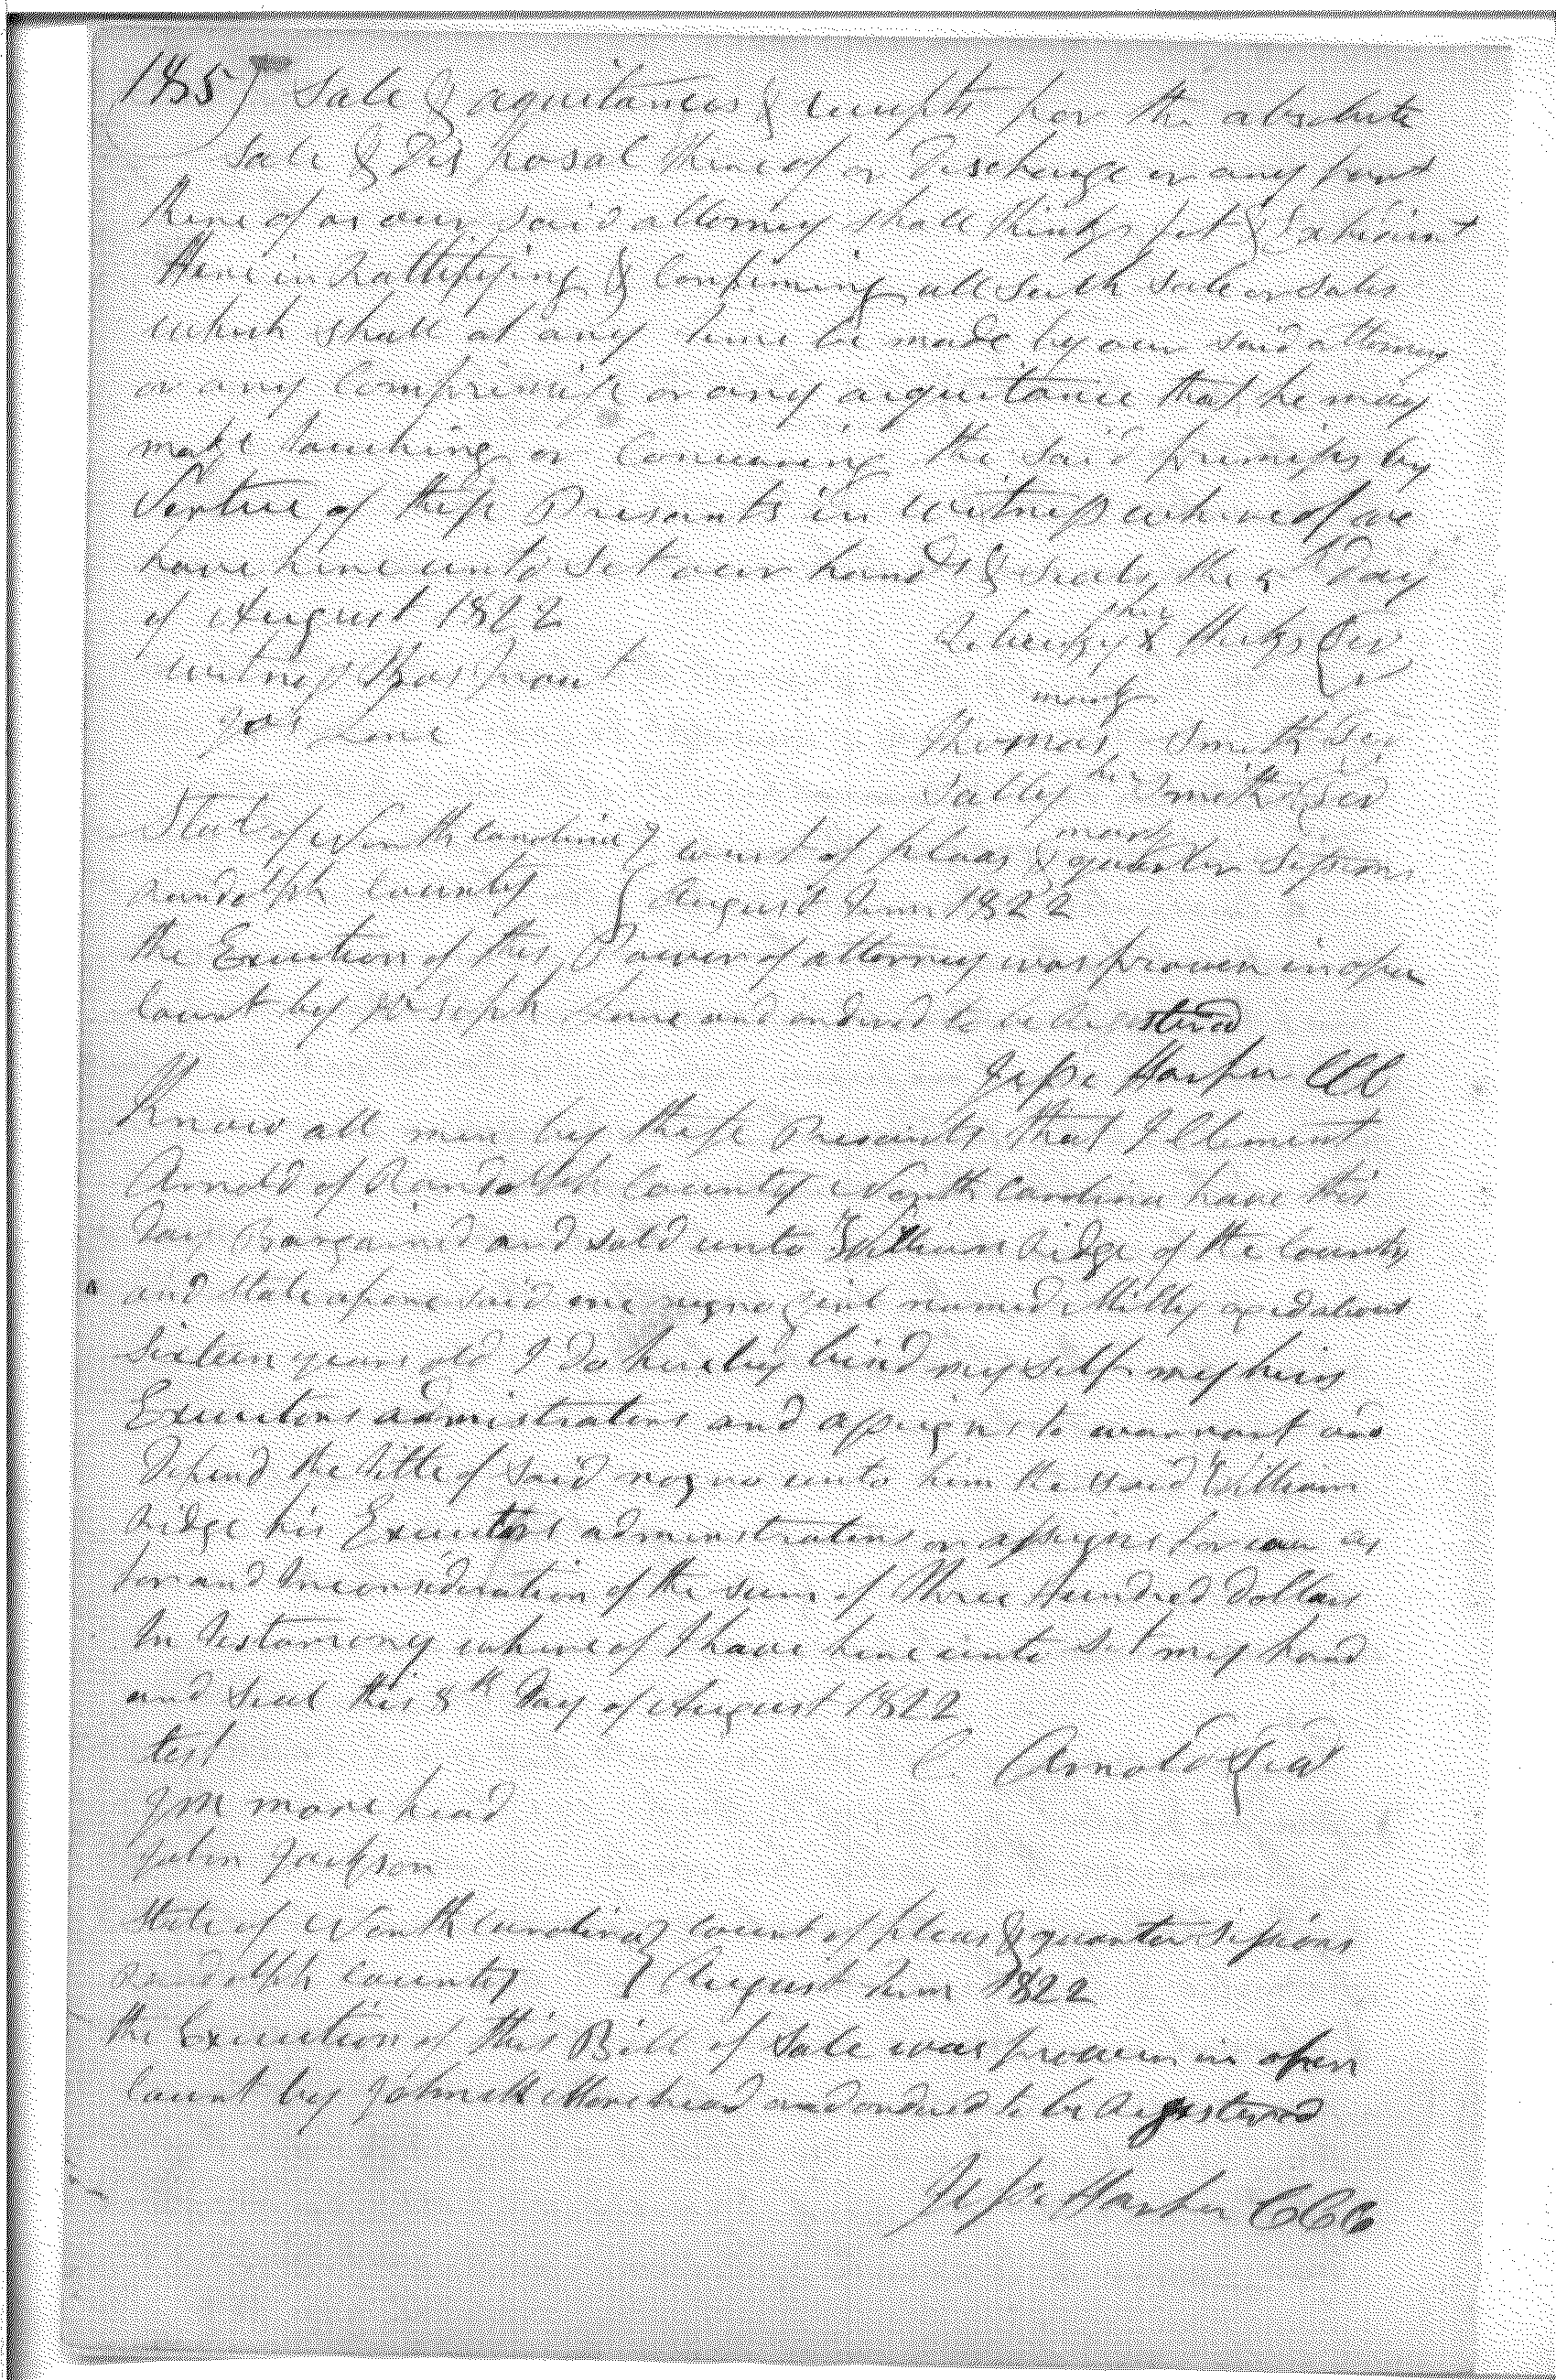 185) Sale & aquitances & receipts for the absolute
Sale & Disposal thereof or Discharge or any part
thereof as our said attorney shall think fit & Expedient
Here in Rattifying & Confirming all such sale or sales
which shall at any time be made by our said attorney
or any Compromise or any acquitance that he may
make touching or Concerning the said premises by
Vertue of these Presents in witness whereof we
have hereunto set our hands & seals, the 5th Day
of August 1822
witness
Jos Lane
her
X Hicks
mark
Thomas Smith
Sally her Smith
mark
State of North Carolina } Court of pleas & quarter Sessions
Randolph County } August Term 1822
the Execution of this Power of attorney was proven in open
Court by Joseph Lane and ordered to be Registered
Jesse Harper CCC
Know all men by these Presents that I Clement
Arnold of Randolph County North Carolina have this
Day Bargained and sold unto William Ridge of the County
and State afore said one negro girl named Milly aged about
Sixteen years old I do hereby bind my self my heirs
Executors admistrators and assigns to warrant and
Defend the title of said negro unto him the said William
Ridge his Executors adminstrators or assigns forever as
for and Inconsideration of the sum of Three Hundred Dollars
In testamony whereof I have hereunto set my hand
and seal this 8th Day of August 1822
test
C. Arnold Seal
J M morehead
John Jackson
State of North Carolina } Court of pleas & quarter Sessions
Randolph County } August Term 1822
the Execution of this Bill of Sale was proven in open
Court by John M Morehead and ordered to be Registered
Jesse Harper CCC